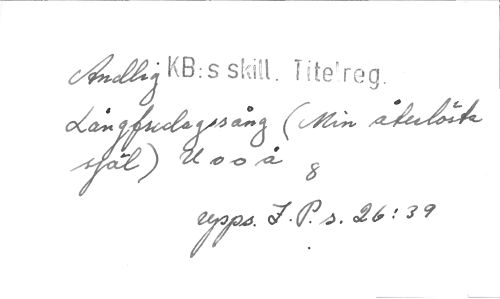 Andlig KB:s skill. Titelreg.
Långfredagssång (Min återlösta
själ) U o o å 8
upps. J. P. s. 26:39